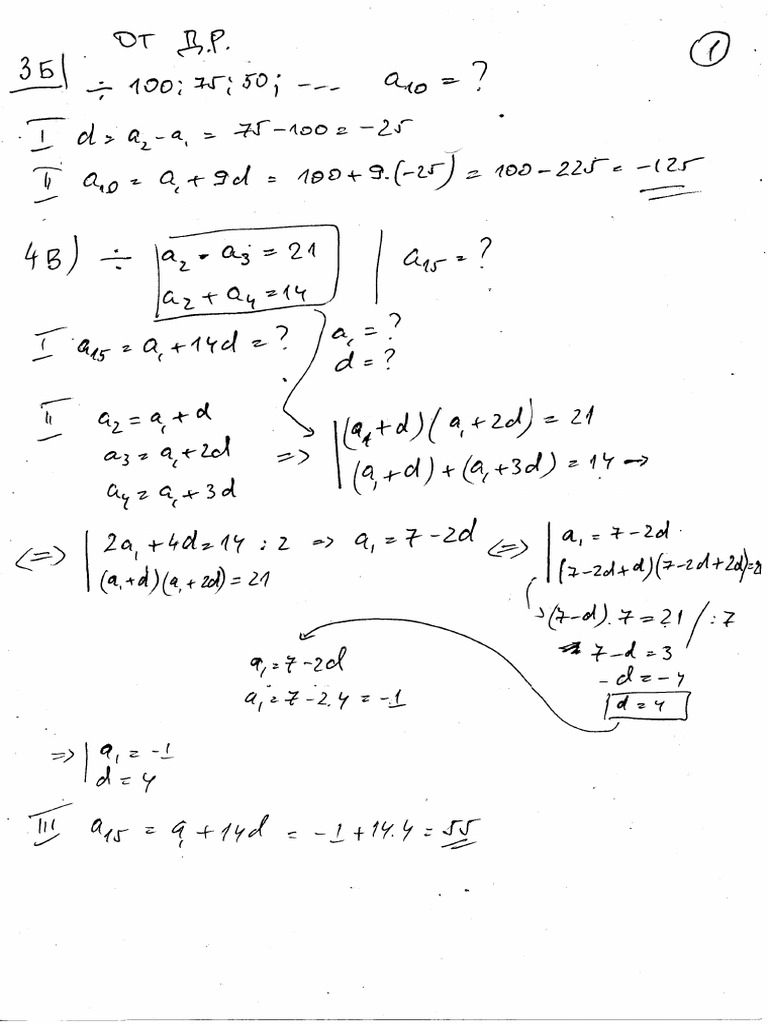 ОТ Д.Р.
①
3Б| ÷ 100; 75; 50; ---- a₁₀ = ?
I d = a₂ - a₁ = 75 - 100 = -25
II a₁₀ = a₁ + 9d = 100 + 9.(-25) = 100 - 225 = -125
4В) ÷ | a₂ . a₃ = 21 | a₁₅ = ?
a₂ + a₄ = 14
I a₁₅ = a₁ + 14d = ? / a₁ = ?
d = ?
II a₂ = a₁ + d | (a₁ + d) (a₁ + 2d) = 21
a₃ = a₁ + 2d => | (a₁ + d) + (a₁ + 3d) = 14 →
a₄ = a₁ + 3d
<=> | 2a₁ + 4d = 14 : 2 => a₁ = 7 - 2d <=> | a₁ = 7 - 2d
| (a₁ + d) (a₁ + 2d) = 21 | (7 - 2d + d) (7 - 2d + 2d) = 21
(7 - d) . 7 = 21 / : 7
7 - d = 3
- d = - 4
d = 4
a₁ = 7 - 2d
a₁ = 7 - 2.4 = -1
=> | a₁ = -1
| d = 4
III a₁₅ = a₁ + 14d = -1 + 14.4 = 55